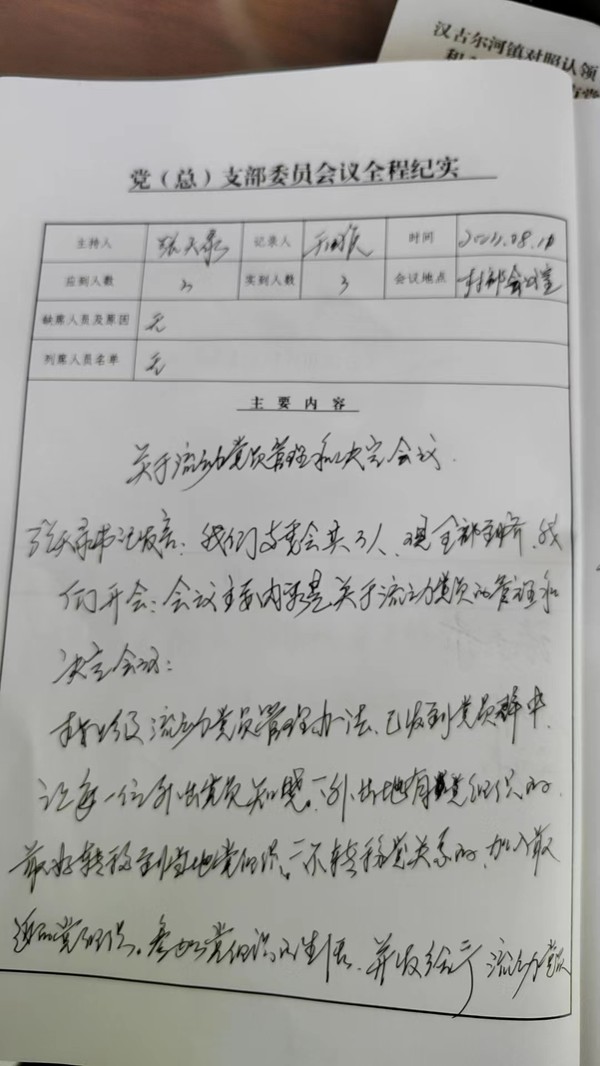 汉古尔河镇对照认领
党（总）支部委员会议全程纪实
主持人 记录人 时间 2023.08.10
应到人数 3 实到人数 3 会议地点 村部会议室
缺席人员及原因 无
列席人员名单 无
主要内容
关于流动党员管理和决定会议.
书记发言：我们支委会共3人、现全部到齐，我
们开会：会议主要内容是关于流动党员的管理和
决定会议：
按上级流动党员管理办法、已发到党员群中、
让每一位外出党员知晓。一外出地有党组织的、
最好转移到当地党组织。二不转移党关系的、加入最
近的党组织。参加党组织的生活、并发给予流动党员